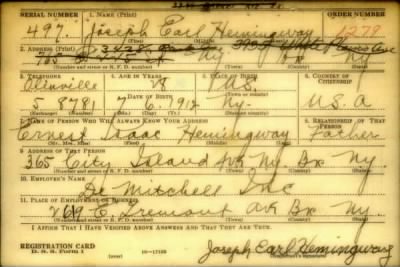 SERIAL NUMBER 1. NAME (Print) ORDER NUMBER
497. Joseph Earl Hemingway
(First) (Middle) (Last)
2. ADDRESS (Print)
765 Ny Bx Ny.
(Number and street or R. F. D. number) (Town) (County) (State)
3. TELEPHONE 4. AGE IN YEARS 5. PLACE OF BIRTH 6. COUNTRY OF CITIZENSHIP
U.S.
DATE OF BIRTH
5 8781 7 6, 1912 Ny. U.S.A
(Exchange) (Number) (Mo.) (Day) (Yr.) (State or country)
7. NAME OF PERSON WHO WILL ALWAYS KNOW YOUR ADDRESS 8. RELATIONSHIP OF THAT PERSON
Ernest Isaac Hemingway Father
(Mr., Mrs., Miss) (First) (Middle) (Last)
9. ADDRESS OF THAT PERSON
365 City Island Av Ny. Bx Ny.
(Number and street or R. F. D. number) (Town) (County) (State)
10. EMPLOYER'S NAME
De Mitchell Inc
11. PLACE OF EMPLOYMENT OR BUSINESS
E. Tremont Av Bx Ny.
(Number and street or R. F. D. number) (Town) (County) (State)
I AFFIRM THAT I HAVE VERIFIED ABOVE ANSWERS AND THAT THEY ARE TRUE.
REGISTRATION CARD
D. S. S. Form 1
Joseph Earl Hemingway
(Registrant's signature)